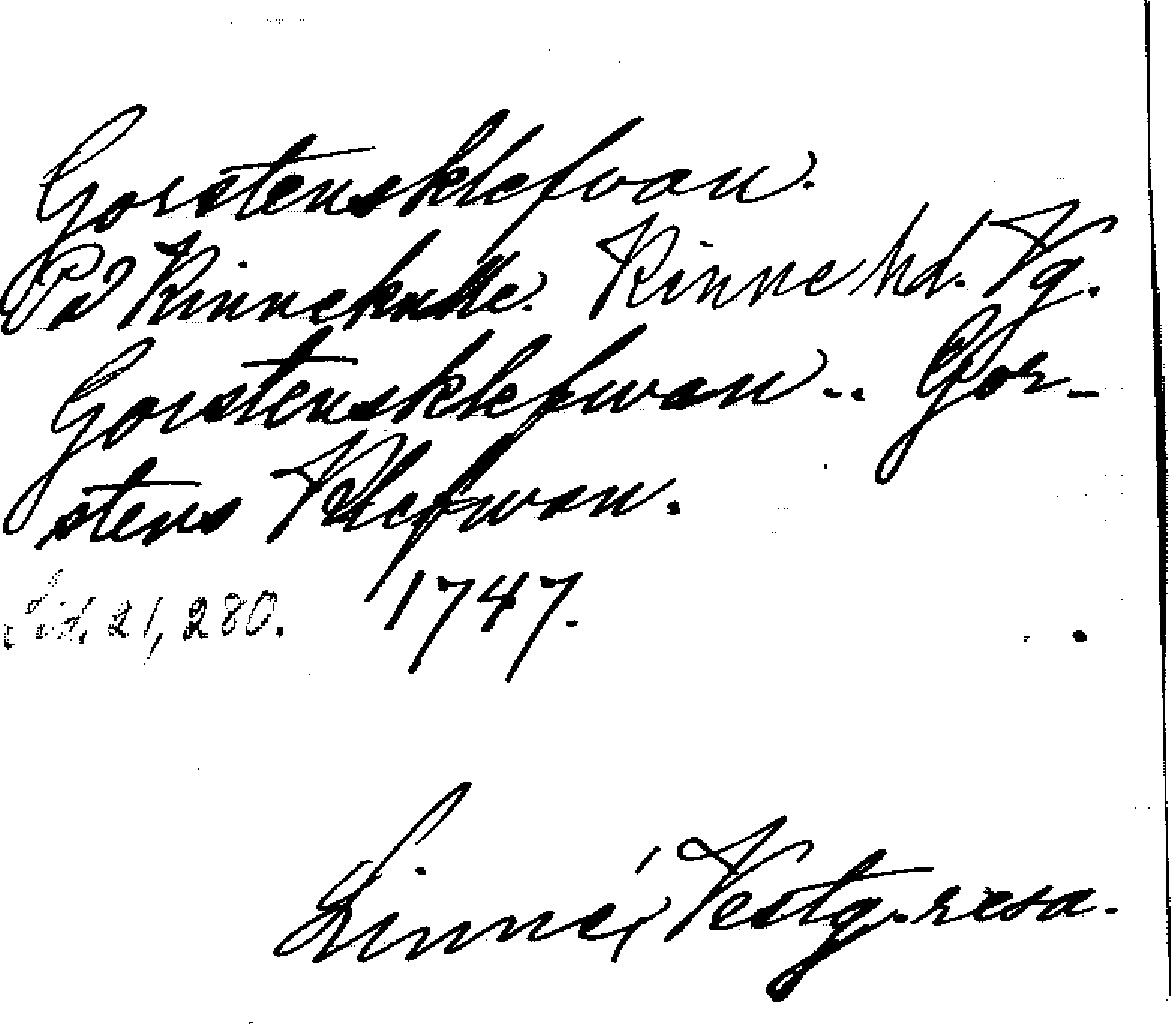 Gorstensklefvan.
På Kinnekulle. Kinne hd. Vg.
Gorstensklefwan.. Gor-
stens Klefwan.
Sid. 21, 280. 1747.
Linné, Vestg. resa.